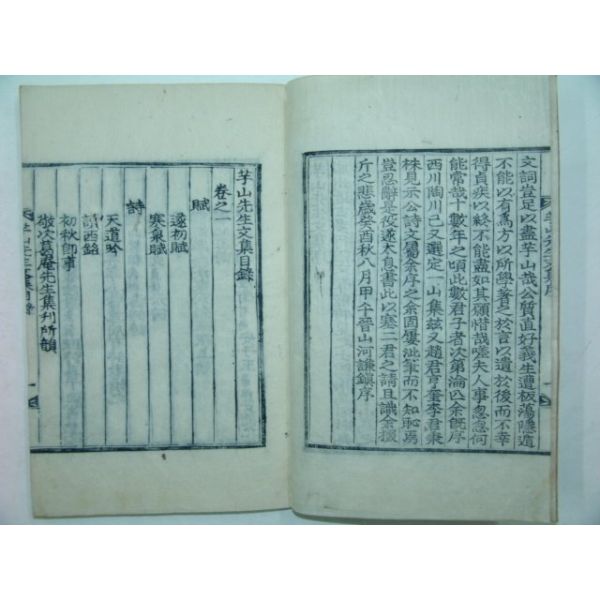 文詞豈足以盡芋山哉公質直好義生遭板蕩隱遁
不能以有爲方以所學著之於言以遺於後而不幸
得貞疾以終不能盡如其願惜哉嗟夫人事忽忽何
能常哉十數年之頃此數君子者次第淪亡余旣序
西川陶川已又選定一山集玆又趙君亨奎李君秉
株見示公詩文屬余序之余固屢泚筆而不知恥焉
豈忍辭是役遂太息書此以塞二君之請且識余援
斤之悲歲癸酉秋八月甲午晉山河謙鎭序
芋山先生文集目錄
卷之一
賦
遂初賦
寒泉賦
詩
天道吟
讀西銘
初秋卽事
敬次葛庵先生集刊所韻